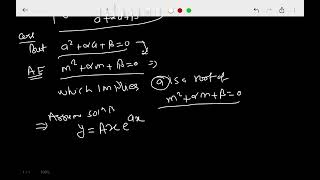 Case
But a²+αa+β=0
A.E m²+αm+β=0 ⇒
which implies a is a root of
m²+αm+β=0
⇒ Assume solⁿ is
y=Axe^{ax}